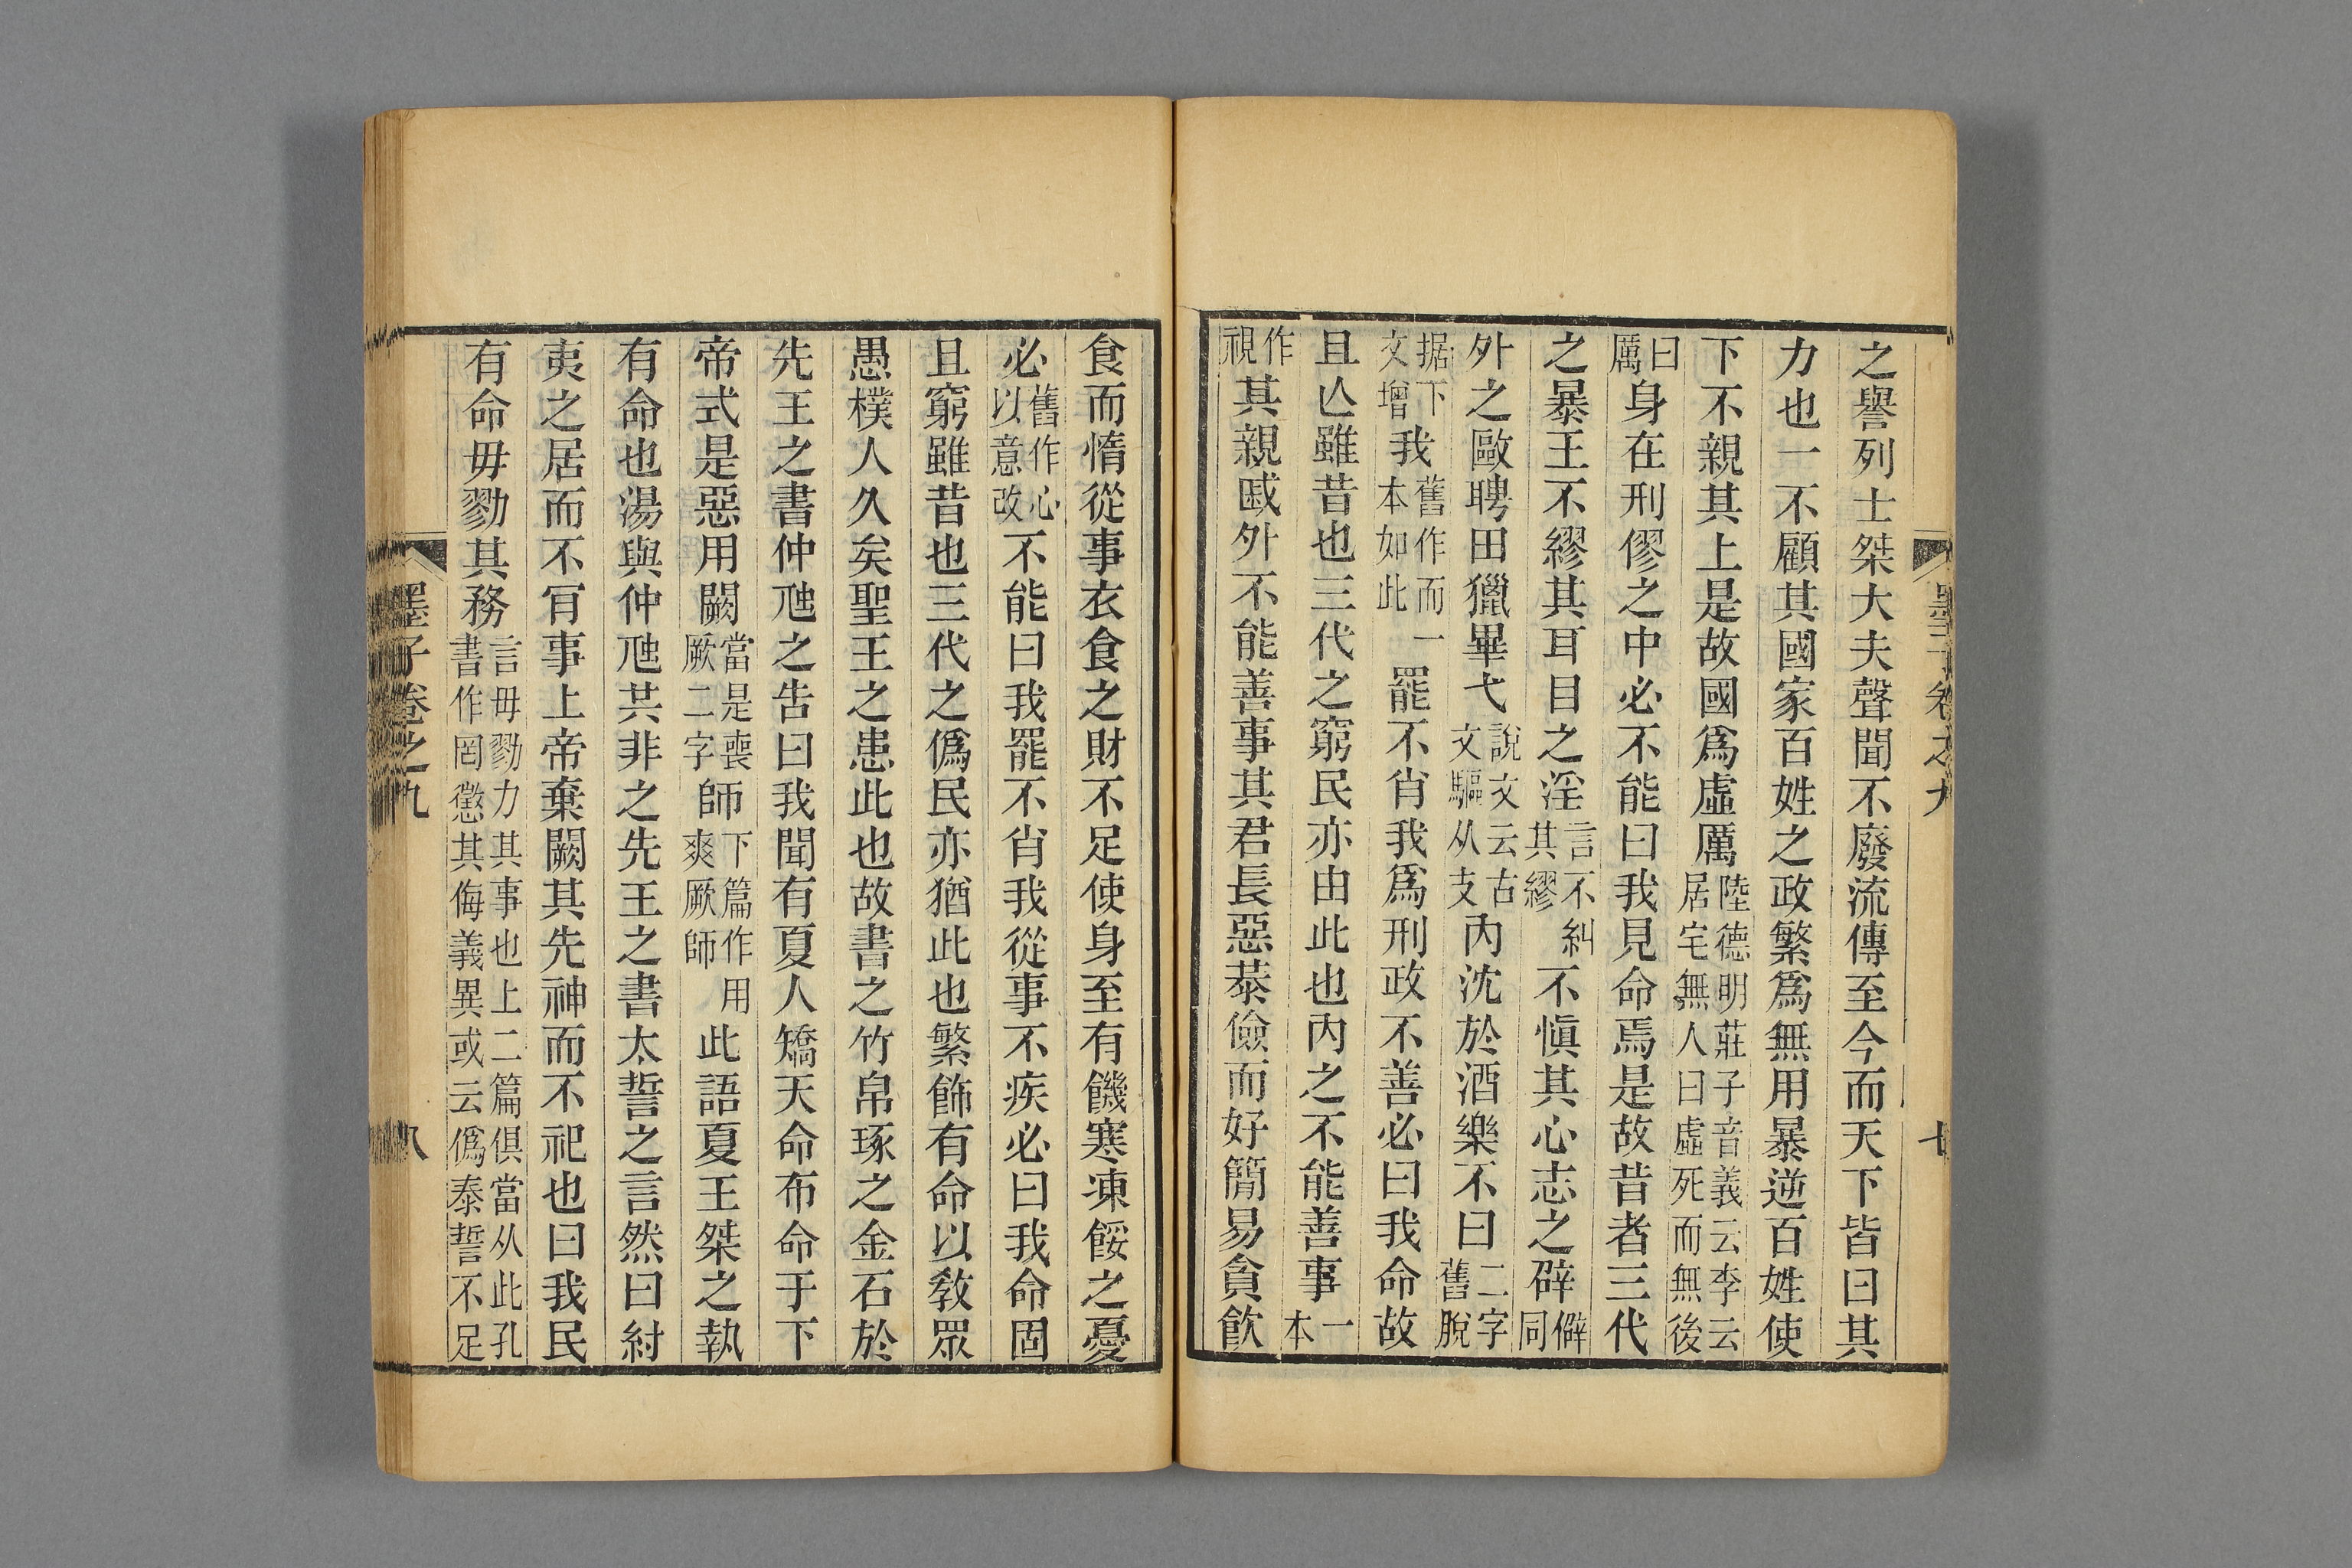 墨子卷之九 七
之譽列士桀大夫聲聞不廢流傳至今而天下皆曰其
力也一不顧其國家百姓之政繁爲無用暴逆百姓使
下不親其上是故國爲虛厲陸德明莊子音義云李云居宅無人曰虛死而無後
曰厲身在刑僇之中必不能曰我見命焉是故昔者三代
之暴王不繆其耳目之淫言不糾其繆不愼其心志之辟僻同
外之歐聘田獵畢弋說文云古文驅从支內沈於酒樂不曰二字舊脫
据下文增我舊作而一本如此罷不肖我爲刑政不善必曰我命故
且亾雖昔也三代之窮民亦由此也內之不能善事一本
作視其親戚外不能善事其君長惡恭儉而好簡易貪飮
食而惰從事衣食之財不足使身至有饑寒凍餒之憂
必舊作心以意改不能曰我罷不肖我從事不疾必曰我命固
且窮雖昔也三代之僞民亦猶此也繁飾有命以敎眾
愚樸人久矣聖王之患此也故書之竹帛琢之金石於
先王之書仲虺之告曰我聞有夏人矯天命布命于下
帝式是惡用闕當是喪厥二字師下篇作用爽厥師此語夏王桀之執
有命也湯與仲虺共非之先王之書太誓之言然曰紂
夷之居而不肎事上帝棄闕其先神而不祀也曰我民
有命毋勠其務言毋勠力其事也上二篇俱當从此孔書作罔懲其侮義異或云僞泰誓不足
墨子卷之九 八